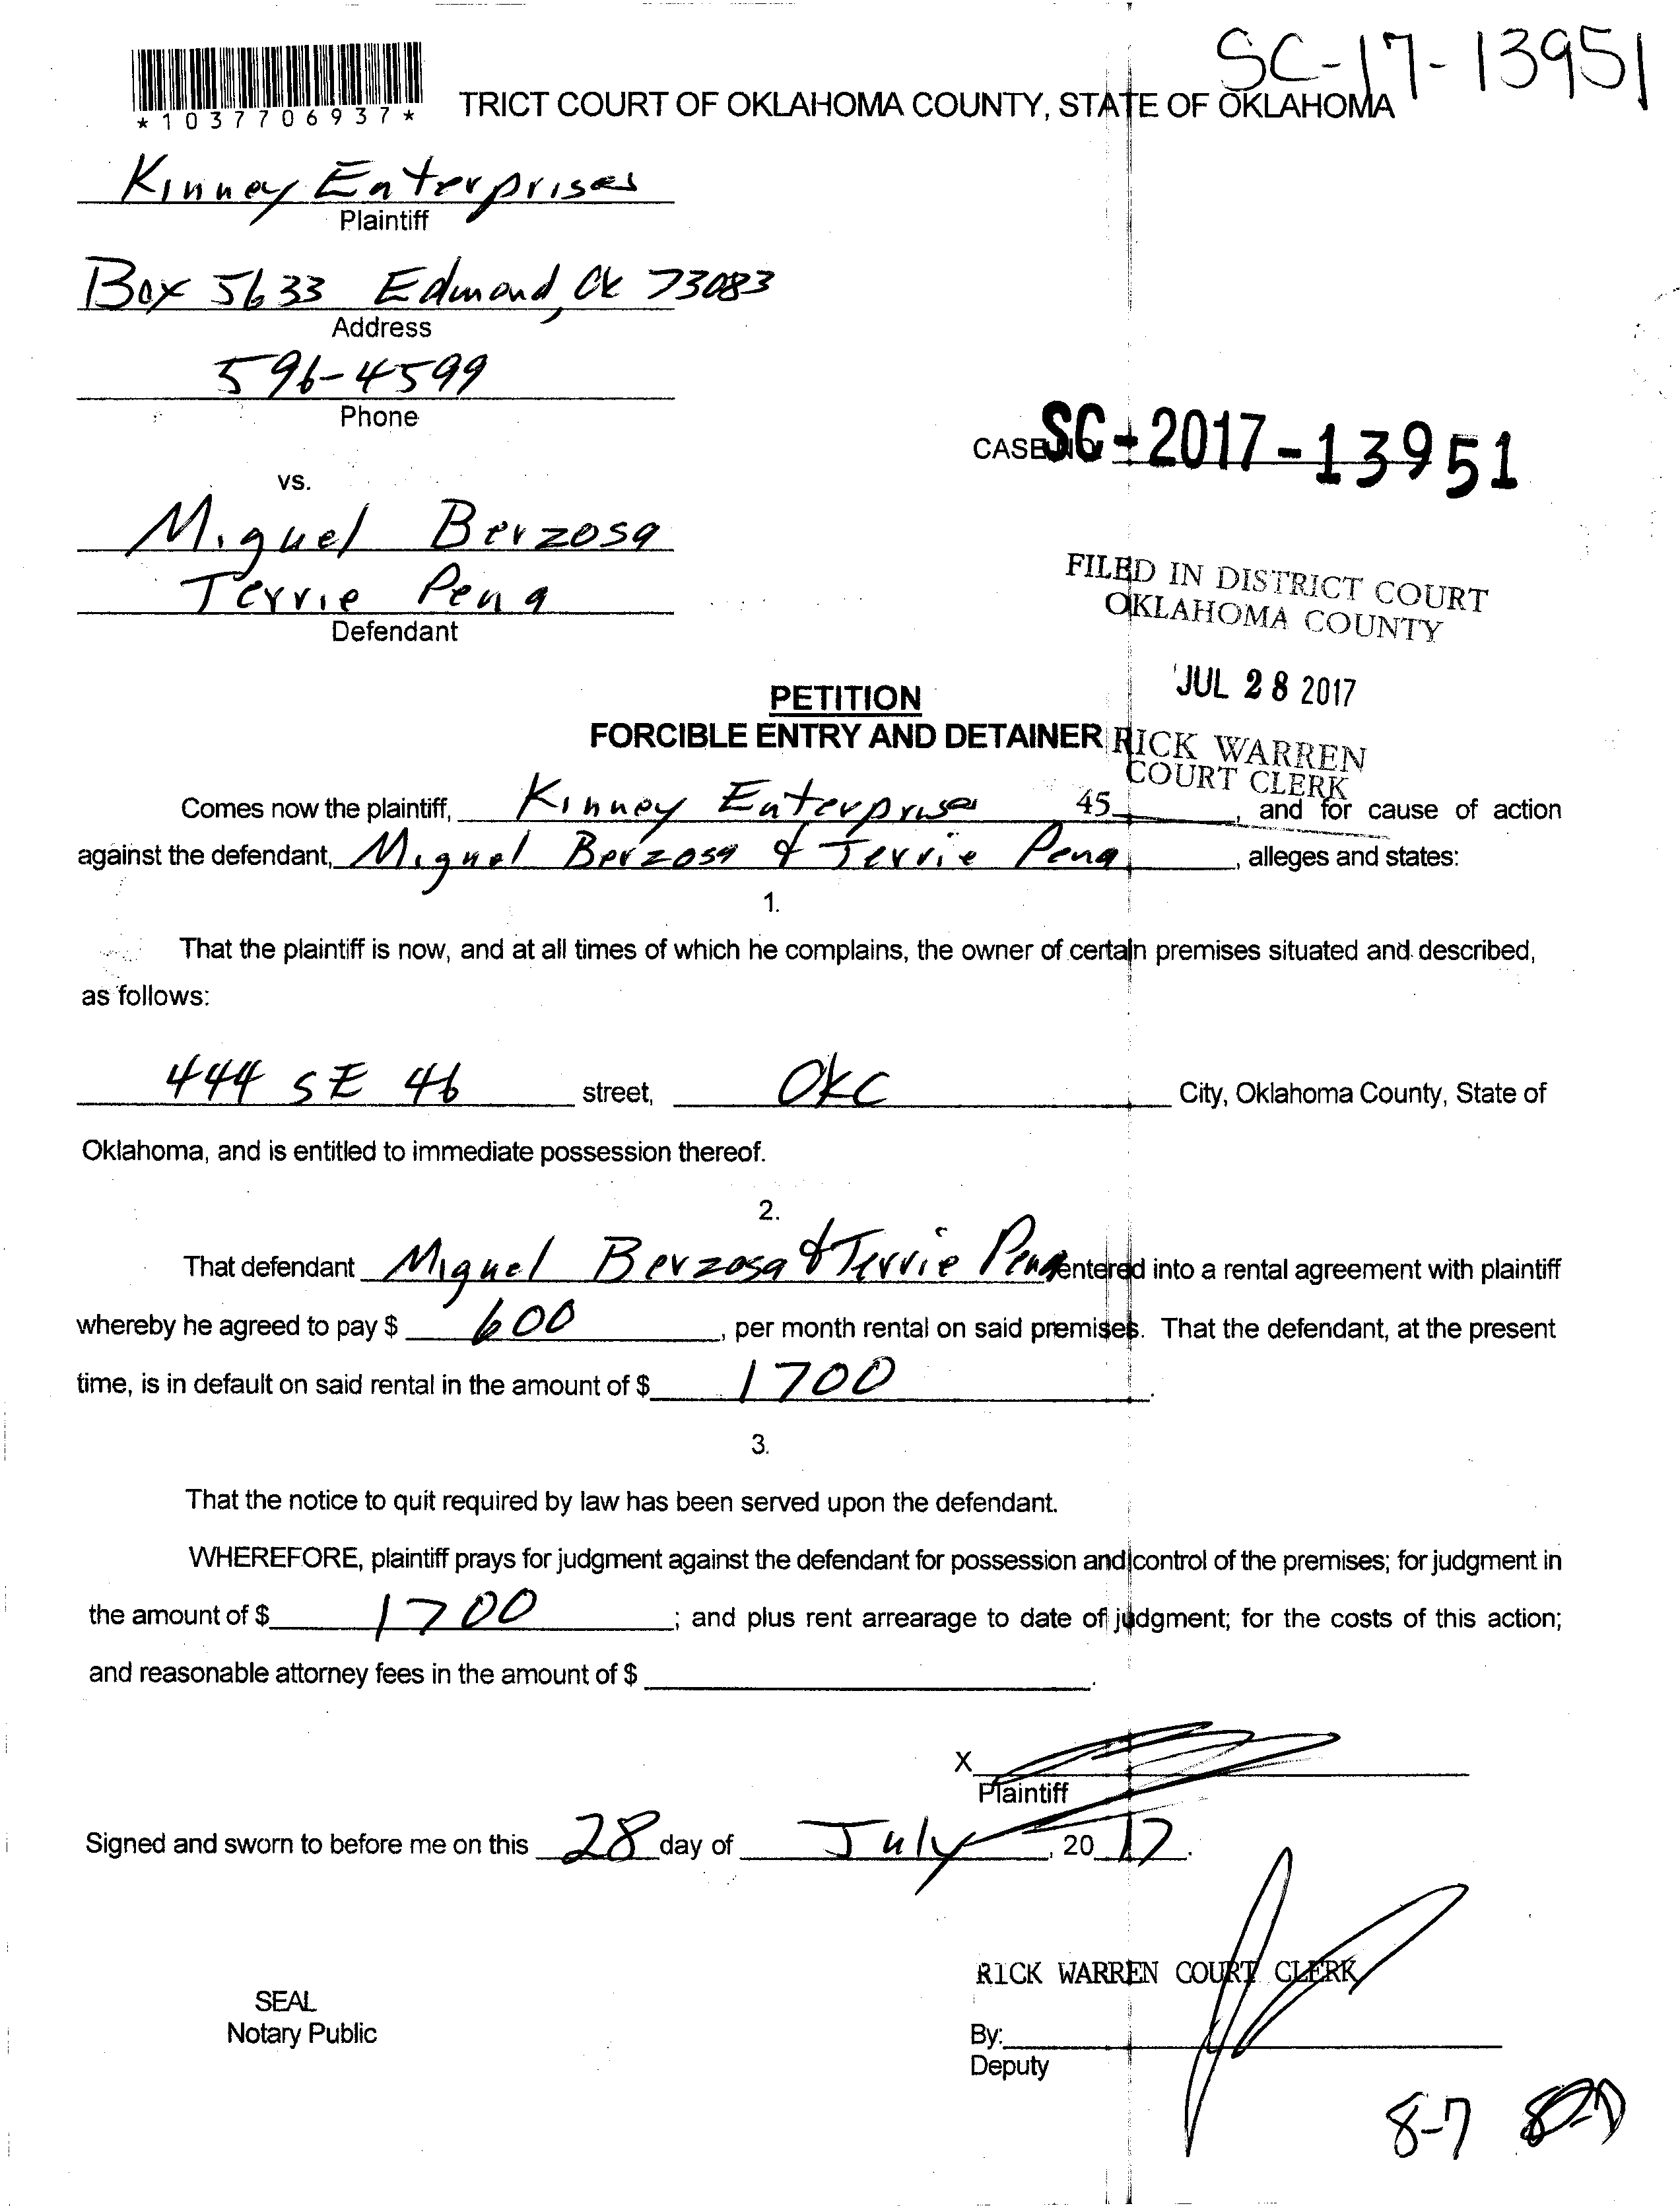 SC-17-13951
*1037706937*
TRICT COURT OF OKLAHOMA COUNTY, STATE OF OKLAHOMA
Kinney Enterprises
Plaintiff
Box 5633 Edmond, Ok 73083
Address
596-4599
Phone
CASE NO SC-2017-13951
vs.
Miguel Berzosa
Terrie Pena
Defendant
FILED IN DISTRICT COURT
OKLAHOMA COUNTY
JUL 28 2017
RICK WARREN
COURT CLERK
45
PETITION
FORCIBLE ENTRY AND DETAINER
Comes now the plaintiff, Kinney Enterprises, and for cause of action
against the defendant, Miguel Berzosa & Terrie Pena, alleges and states:
1.
That the plaintiff is now, and at all times of which he complains, the owner of certain premises situated and described,
as follows:
444 SE 46 street, OKC City, Oklahoma County, State of
Oklahoma, and is entitled to immediate possession thereof.
2.
That defendant Miguel Berzosa & Terrie Pena entered into a rental agreement with plaintiff
whereby he agreed to pay $ 600, per month rental on said premises. That the defendant, at the present
time, is in default on said rental in the amount of $ 1700.
3.
That the notice to quit required by law has been served upon the defendant.
WHEREFORE, plaintiff prays for judgment against the defendant for possession and control of the premises; for judgment in
the amount of $ 1700; and plus rent arrearage to date of judgment; for the costs of this action;
and reasonable attorney fees in the amount of $ .
X
Plaintiff
Signed and sworn to before me on this 28 day of July, 2017.
RICK WARREN COURT CLERK
SEAL
Notary Public
By:
Deputy
8-7